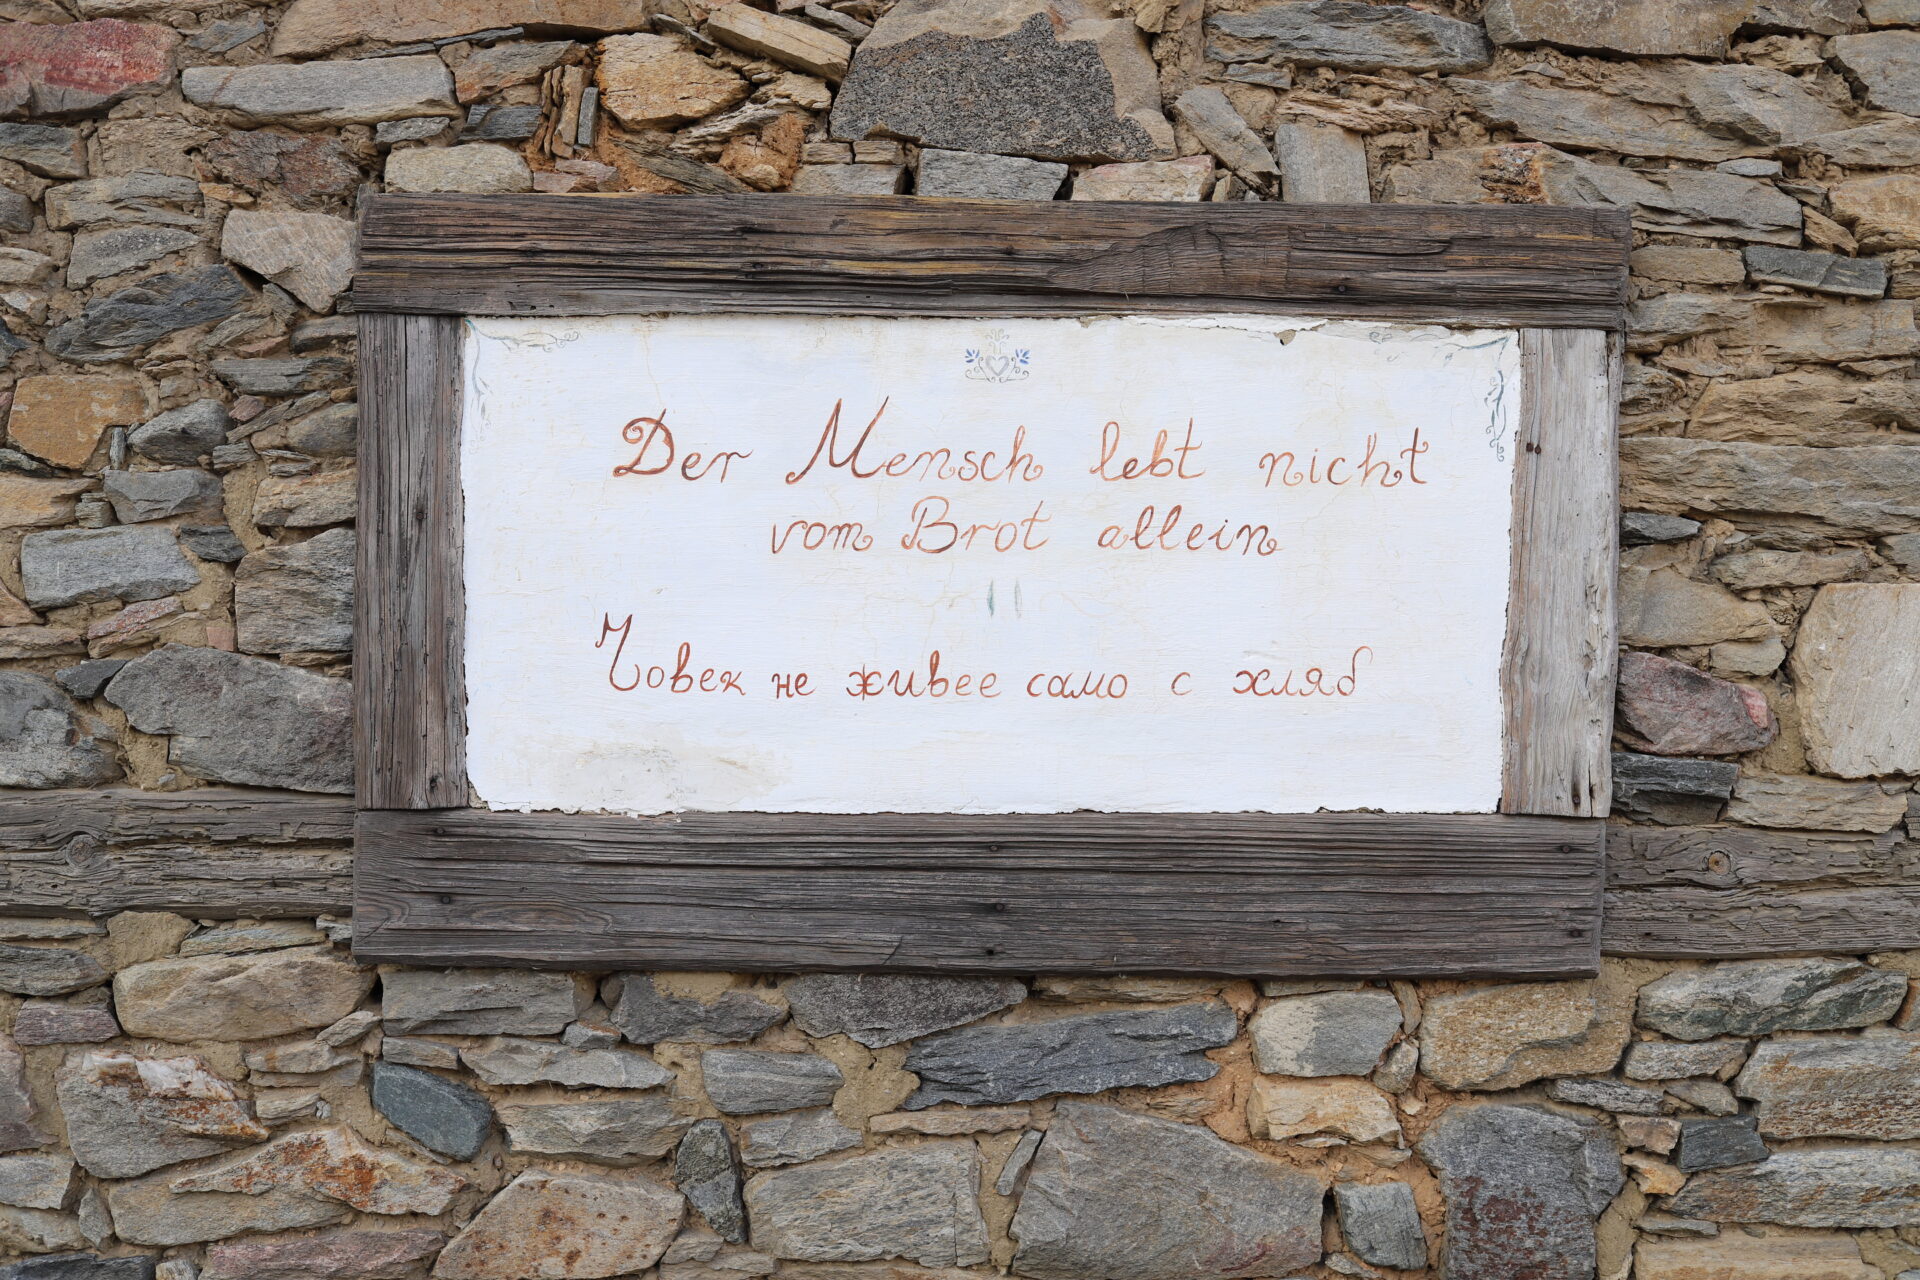 Der Mensch lebt nicht
vom Brot allein
Човек не живее само с хляб